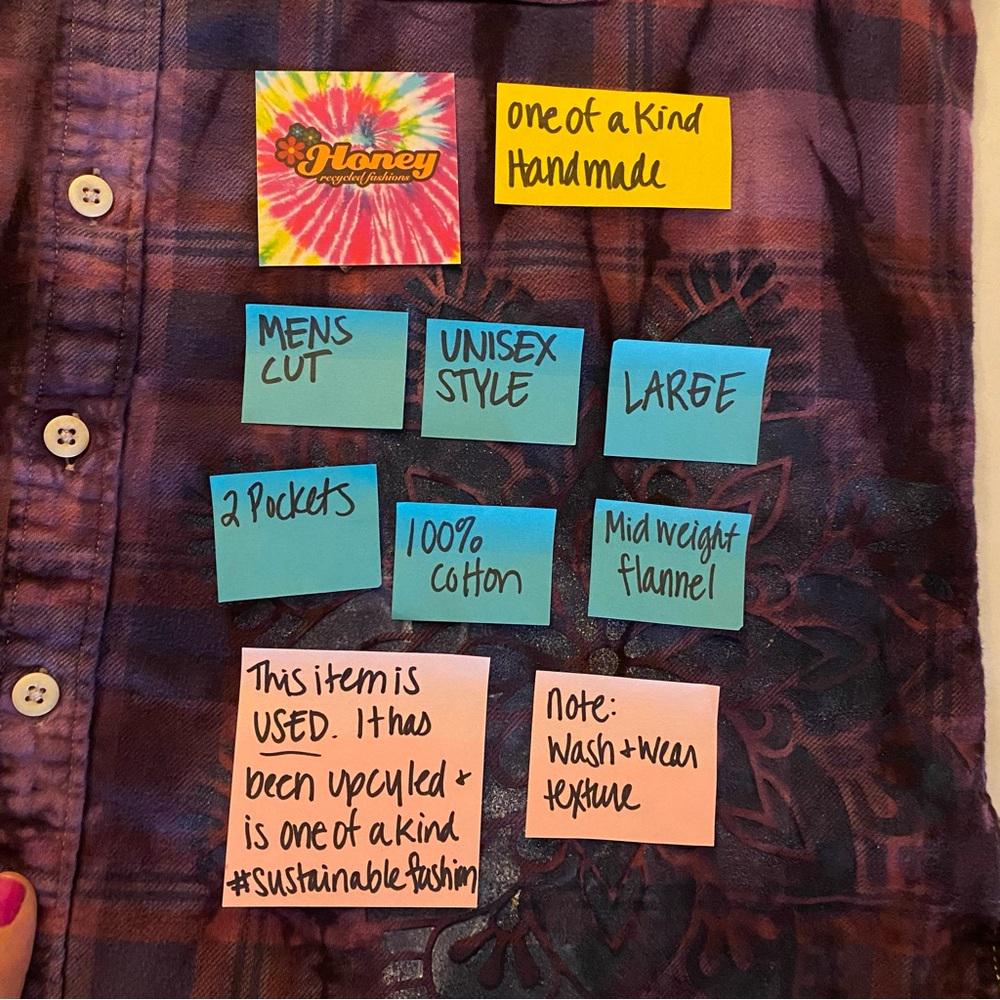 Honey
recycled fashions
one of a kind
Handmade
MENS
CUT
UNISEX
STYLE
LARGE
2 Pockets
100%
cotton
Mid weight
flannel
This item is
USED. It has
been upcyled +
is one of a kind
#sustainablefashion
note:
Wash + Wear
texture